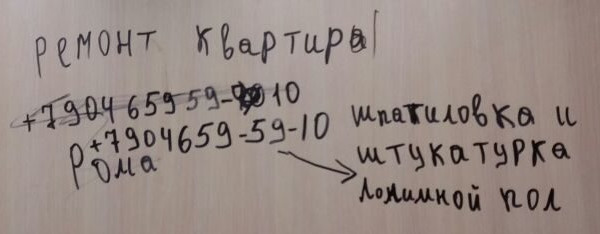 ремонт квартиры
+7904 659 59-10
+7904659-59-10
Рома
шпатиловка и
штукатурка
ломимной пол